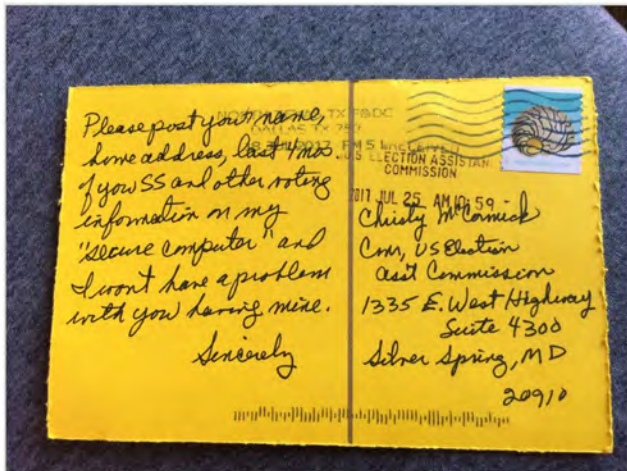 Please post your name,
home address, last 4 nos
of your SS and other voting
information on my
"secure computer" and
I won't have a problem
with you having mine.
Sincerely
TX P&DC
DALLAS TX 750
JUL 2017 PM 5 L
RECEIVED
U.S ELECTION ASSISTAN
COMMISSION
2017 JUL 25 AM 10:59
Christy McCormick
Com, US Election
Asst Commission
1335 E. West Highway
Suite 4300
Silver Spring, MD
20910